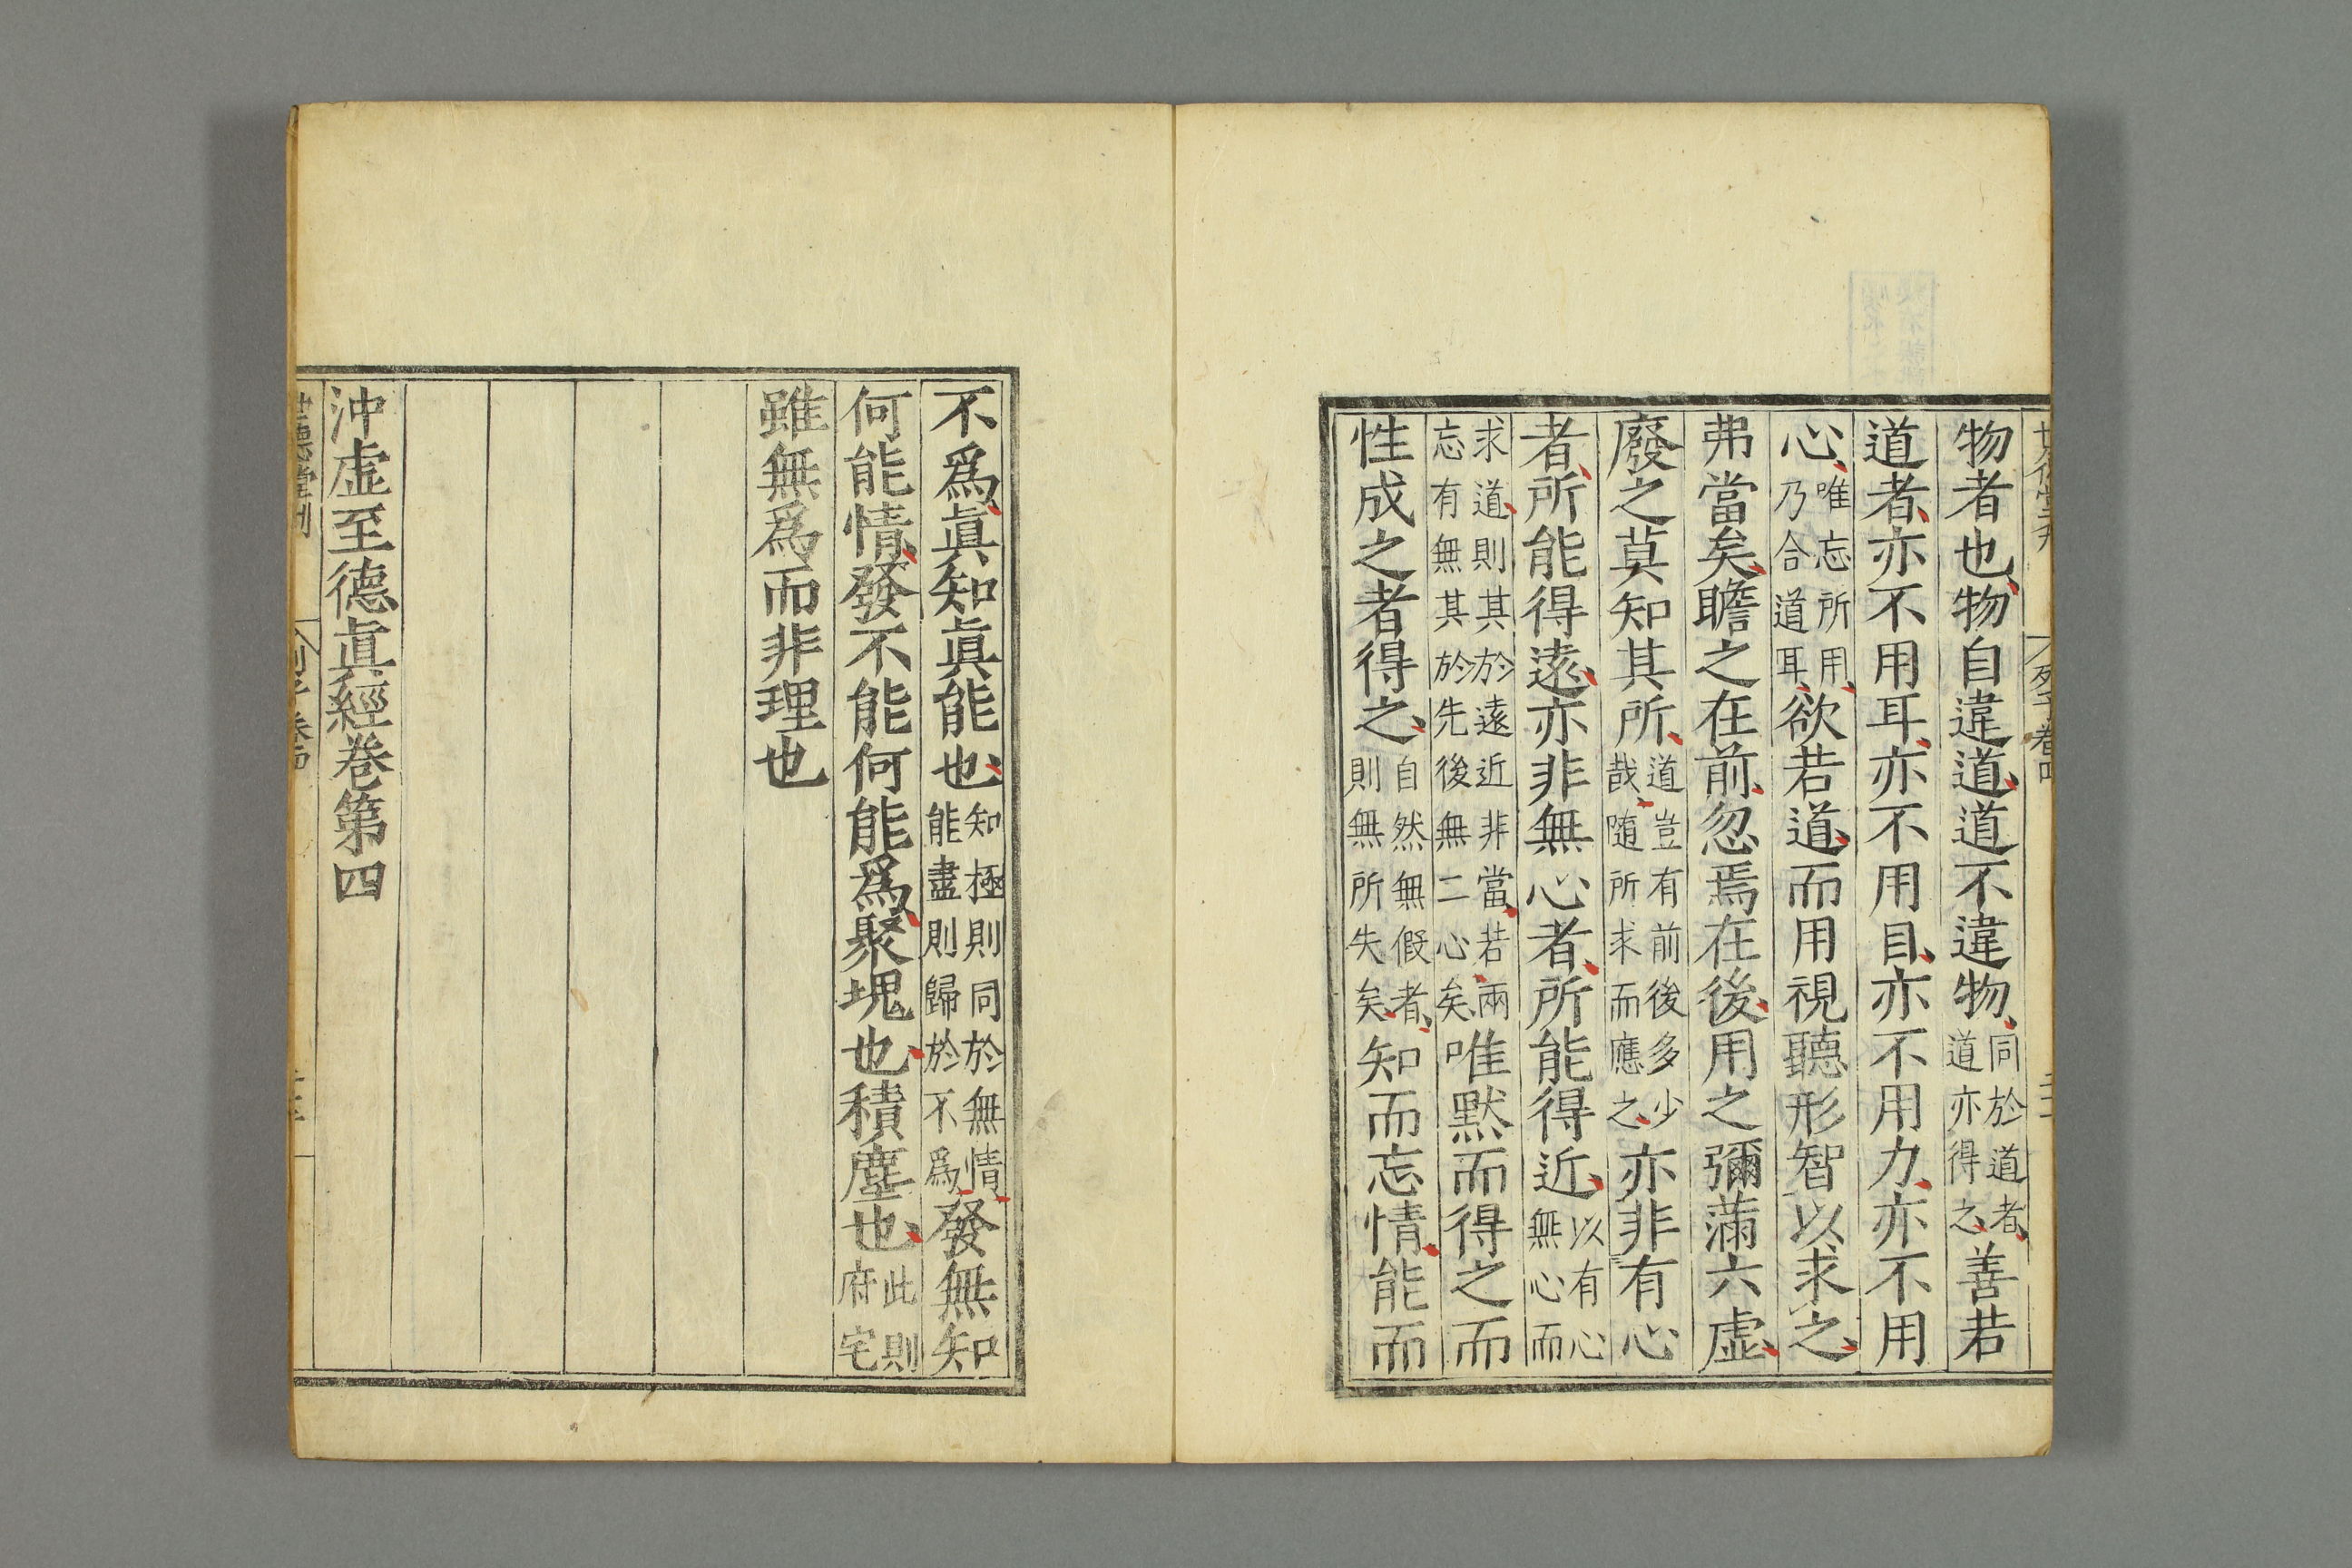 物者也物自違道道不違物同於道者道亦得之善若
道者亦不用耳亦不用目亦不用力亦不用
心唯忘所用乃合道耳欲若道而用視聽形智以求之
弗當矣瞻之在前忽焉在後用之彌滿六虛
廢之莫知其所道豈有前後多少哉隨所求而應之亦非有心
者所能得遠亦非無心者所能得近以有心無心而
求道則其於遠近非當若兩忘有無其於先後無二心矣唯默而得之而
性成之者得之自然無假者則無所失矣知而忘情能而
不爲眞知眞能也知極則同於無情能盡則歸於不爲發無知
何能情發不能何能爲聚塊也積塵也此則府宅
雖無爲而非理也
沖虛至德眞經卷第四
世德堂刊 列子卷四